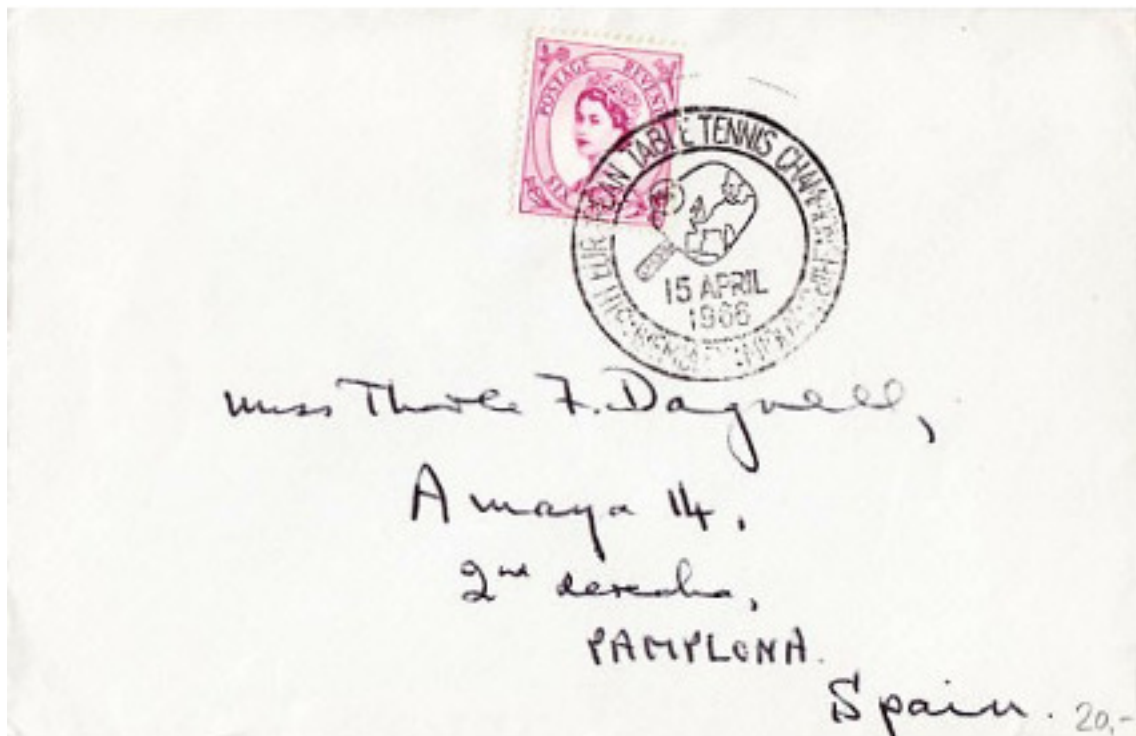 POSTAGE REVENUE
SIX
EUROPEAN TABLE TENNIS CHAMPIONSHIPS
15 APRIL
1966
Miss F. Dagnell,
Amaya 14,
2nd derecha,
PAMPLONA.
Spain.
20,-